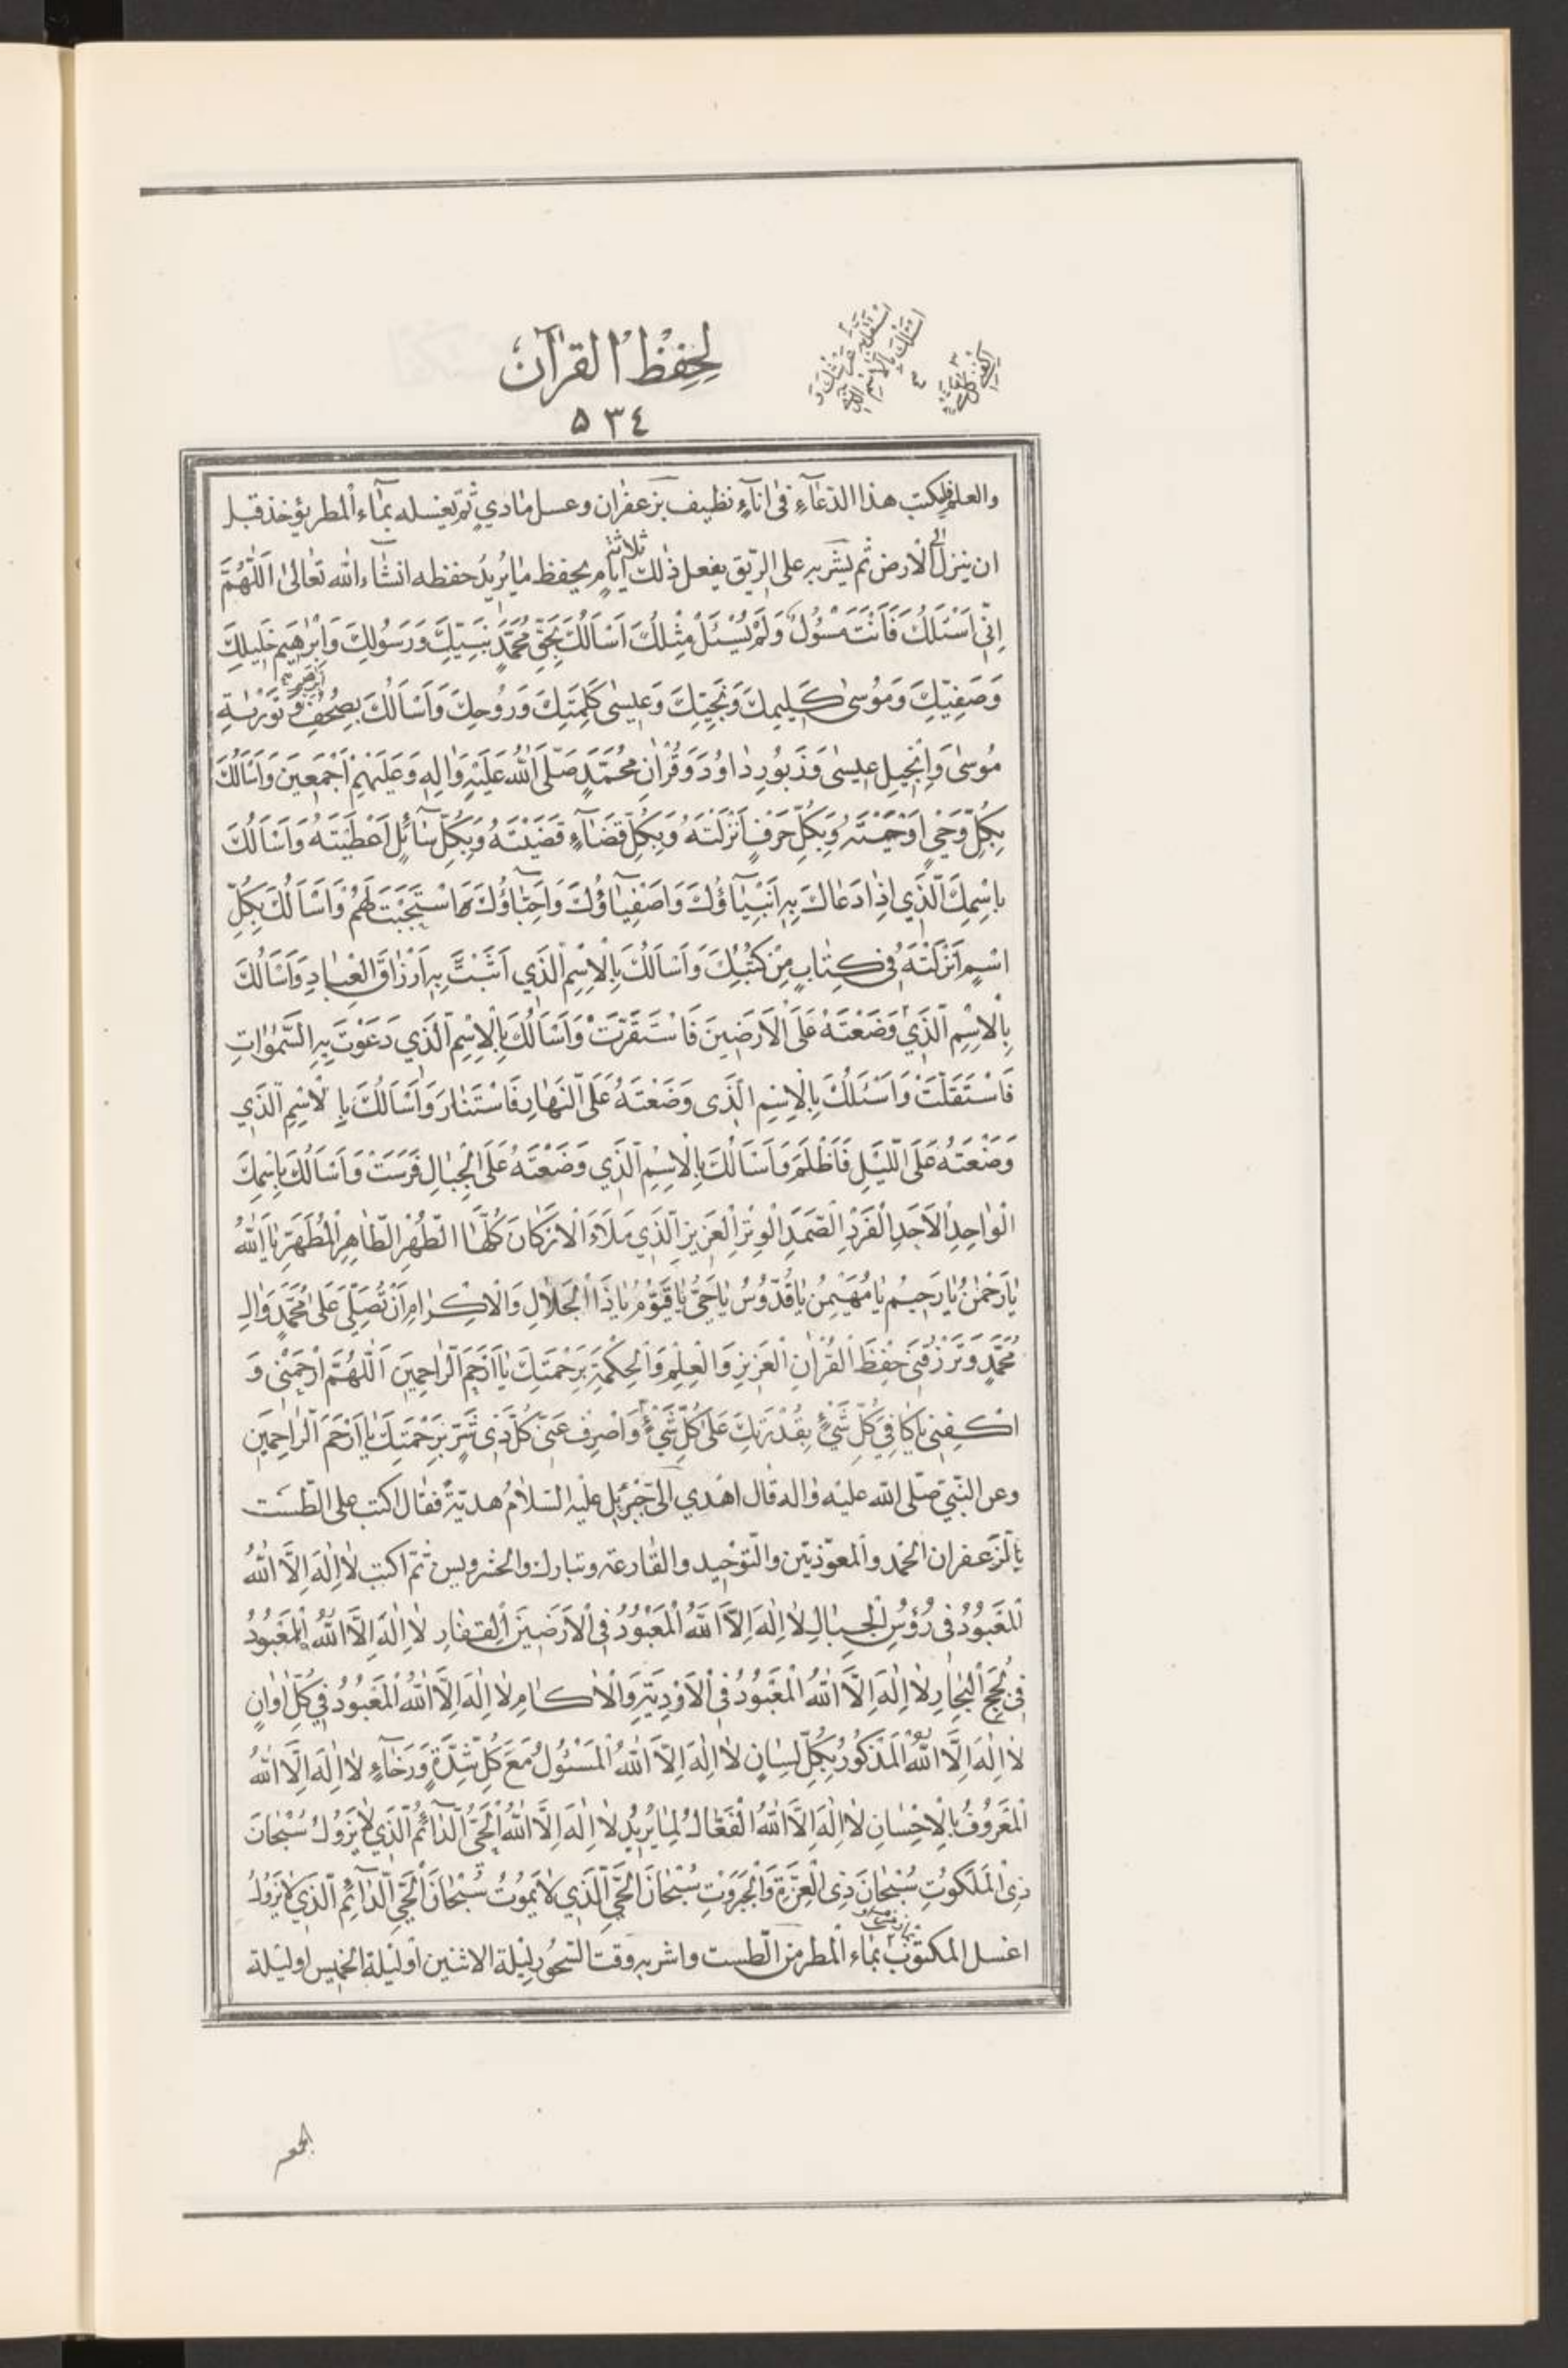 لِحِفْظِ الْقُرْآنِ
٥٣٤
والعلم فليكتب هذا الدّعآء فى انآءٍ نظيف بزعفران وعسل ماذي ثمّ يغسله بمآء المطر يؤخذ قبل
ان ينزل الى الارض ثم يشربه على الرّيق يفعل ذٰلك ثلاثة ايّام يحفظ ما يُريدُ حفظه انشآء الله تعالىٰ اَللّٰهُمَّ
اِنّى اَسْئَلُكَ فَاَنْتَ مَسْؤُلٌ وَلَمْ يُسْئَلْ مِثْلُكَ اَسْاَلُكَ بِحَقِّ مُحَمَّدٍ نَبِيِّكَ وَرَسُولِكَ وَاِبْرٰهيمَ خَليلِكَ
وَصَفِيِّكَ وَمُوسىٰ كَليمِكَ وَنَجِيِّكَ وَعيسٰى كَلِمَتِكَ وَرُوحِكَ وَاَسْاَلُكَ بِصُحُفِ اِبْرٰهيمَ وَتَوْرٰيةِ
مُوسٰى وَاِنْجيلِ عيسٰى وَزَبُورِ دٰاوُدَ وَقُرْاٰنِ مُحَمَّدٍ صَلَّى اللّٰهُ عَلَيْهِ وَاٰلِهِ وَعَلَيْهِمْ اَجْمَعينَ وَاَسْاَلُكَ
بِكُلِّ وَحْيٍ اَوْحَيْتَهُ وَبِكُلِّ حَرْفٍ اَنْزَلْتَهُ وَبِكُلِّ قَضآءٍ قَضَيْتَهُ وَبِكُلِّ سٰآئِلٍ اَعْطَيْتَهُ وَاَسْاَلُكَ
بِاسْمِكَ الَّذي اِذٰا دَعٰاكَ بِهِ اَنْبِيٰآؤُكَ وَاَصْفِيٰآؤُكَ وَاَحِبّٰآؤُكَ فَاسْتَجَبْتَ لَهُمْ وَاَسْاَلُكَ بِكُلِّ
اسْمٍ اَنْزَلْتَهُ فى كِتٰابٍ مِنْ كُتُبِكَ وَاَسْاَلُكَ بِالْاِسْمِ الَّذي اَثْبَتَّ بِهِ اَرْزٰاقَ الْعِبٰادِ وَاَسْاَلُكَ
بِالْاِسْمِ الَّذي وَضَعْتَهُ عَلَى الْاَرَضينَ فَاسْتَقَرَّتْ وَاَسْاَلُكَ بِالْاِسْمِ الَّذي دَعَوْتَ بِهِ السَّمٰوٰاتِ
فَاسْتَقَلَّتْ وَاَسْئَلُكَ بِالْاِسْمِ الَّذى وَضَعْتَهُ عَلَى النَّهٰارِ فَاسْتَنٰارَ وَاَسْاَلُكَ بِالْاِسْمِ الَّذي
وَضَعْتَهُ عَلَى اللَّيْلِ فَاَظْلَمَ وَاَسْاَلُكَ بِالْاِسْمِ الَّذي وَضَعْتَهُ عَلَى الْجِبٰالِ فَرَسَتْ وَاَسْاَلُكَ بِاسْمِكَ
الْوٰاحِدِ الْاَحَدِ الْفَرْدِ الصَّمَدِ الْوِتْرِ الْعَزيزِ الَّذي مَلَاَءَ الْاَرْكٰانَ كُلَّهٰا الطُّهْرِ الطّٰاهِرِ الْمُطَهَّرِ يٰا اَللّٰهُ
يٰا رَحْمٰنُ يٰا رَحيمُ يٰا مُهَيْمِنُ يٰا قُدُّوسُ يٰا حَيُّ يٰا قَيُّوْمُ يٰا ذَا الْجَلٰالِ وَالْاِكْرٰامِ اَنْ تُصَلِّيَ عَلىٰ مُحَمَّدٍ وَاٰلِ
مُحَمَّدٍ وَتَرْزُقَنى حِفْظَ الْقُرْاٰنِ الْعَزيزِ وَالْعِلْمِ وَالْحِكْمَةِ بِرَحْمَتِكَ يٰا اَرْحَمَ الرّٰاحِمينَ اَللّٰهُمَّ ارْحَمْنى وَ
اكْفِنى يٰا كٰافِيَ كُلِّ شَيْءٍ بِقُدْرَتِكَ عَلىٰ كُلِّ شَيْءٍ وَاصْرِفْ عَنّى كُلَّ ذى شَرٍّ بِرَحْمَتِكَ يٰا اَرْحَمَ الرّٰاحِمينَ
وعن النّبيّ صلّى الله عليه واٰله قال اهدي الىّ جبرئيل عليه السّلام هديّةً فقال اكتب على الطّست
بالزّعفران الحمد والمعوّذتين والتّوحيد والقارعة وتبارك والحشر ويس ثمّ اكتب لٰا اِلٰهَ اِلَّا اللّٰهُ
الْمَعْبُوُدُ فى رُؤُسِ الْجِبٰالِ لٰا اِلٰهَ اِلَّا اللّٰهُ الْمَعْبُوُدُ فِى الْاَرَضينَ الْقِفٰارِ لٰا اِلٰهَ اِلَّا اللّٰهُ الْمَعْبُوُدُ
فى لُجَجِ الْبِحٰارِ لٰا اِلٰهَ اِلَّا اللّٰهُ الْمَعْبُوُدُ فِى الْاَوْدِيَةِ وَالْاٰكٰامِ لٰا اِلٰهَ اِلَّا اللّٰهُ الْمَعْبُوُدُ في كُلِّ اَوٰانٍ
لٰا اِلٰهَ اِلَّا اللّٰهُ الْمَذْكُورُ بِكُلِّ لِسٰانٍ لٰا اِلٰهَ اِلَّا اللّٰهُ الْمَسْئُولُ مَعَ كُلِّ شِدَّةٍ وَرَخٰآءٍ لٰا اِلٰهَ اِلَّا اللّٰهُ
الْمَعْرُوفُ بِالْاِحْسٰانِ لٰا اِلٰهَ اِلَّا اللّٰهُ الْفَعّٰالُ لِمٰا يُريدُ لٰا اِلٰهَ اِلَّا اللّٰهُ الْحَيُّ الدّٰآئِمُ الَّذي لٰا يَزُولُ سُبْحٰانَ
ذِى الْمَلَكُوتِ سُبْحٰانَ ذِى الْعِزَّةِ وَالْجَبَرُوتِ سُبْحٰانَ الْحَيِّ الَّذي لٰا يَمُوتُ سُبْحٰانَ الْحَيِّ الدّٰآئِمِ الَّذي لٰا يَزُولُ
اغسل المكتوب بمآء المطر من الطّست واشربه وقت السّحور ليلة الاثنين او ليلة الخميس او ليلة
الجمعه